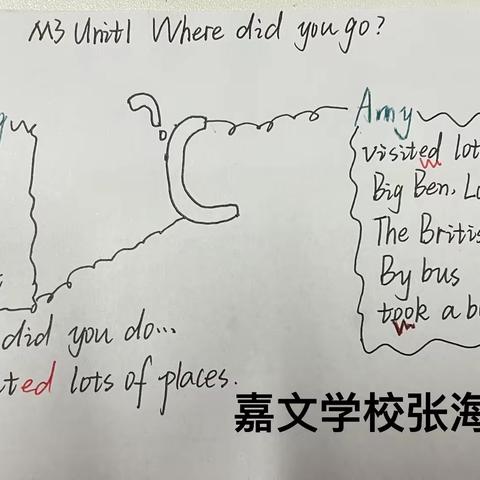 M3 Unit1 Where did you go?
Amy
visited lot
Big Ben, Lo
The Britis
By bus
took a bo
did you do...
ted lots of places.
嘉文学校张海